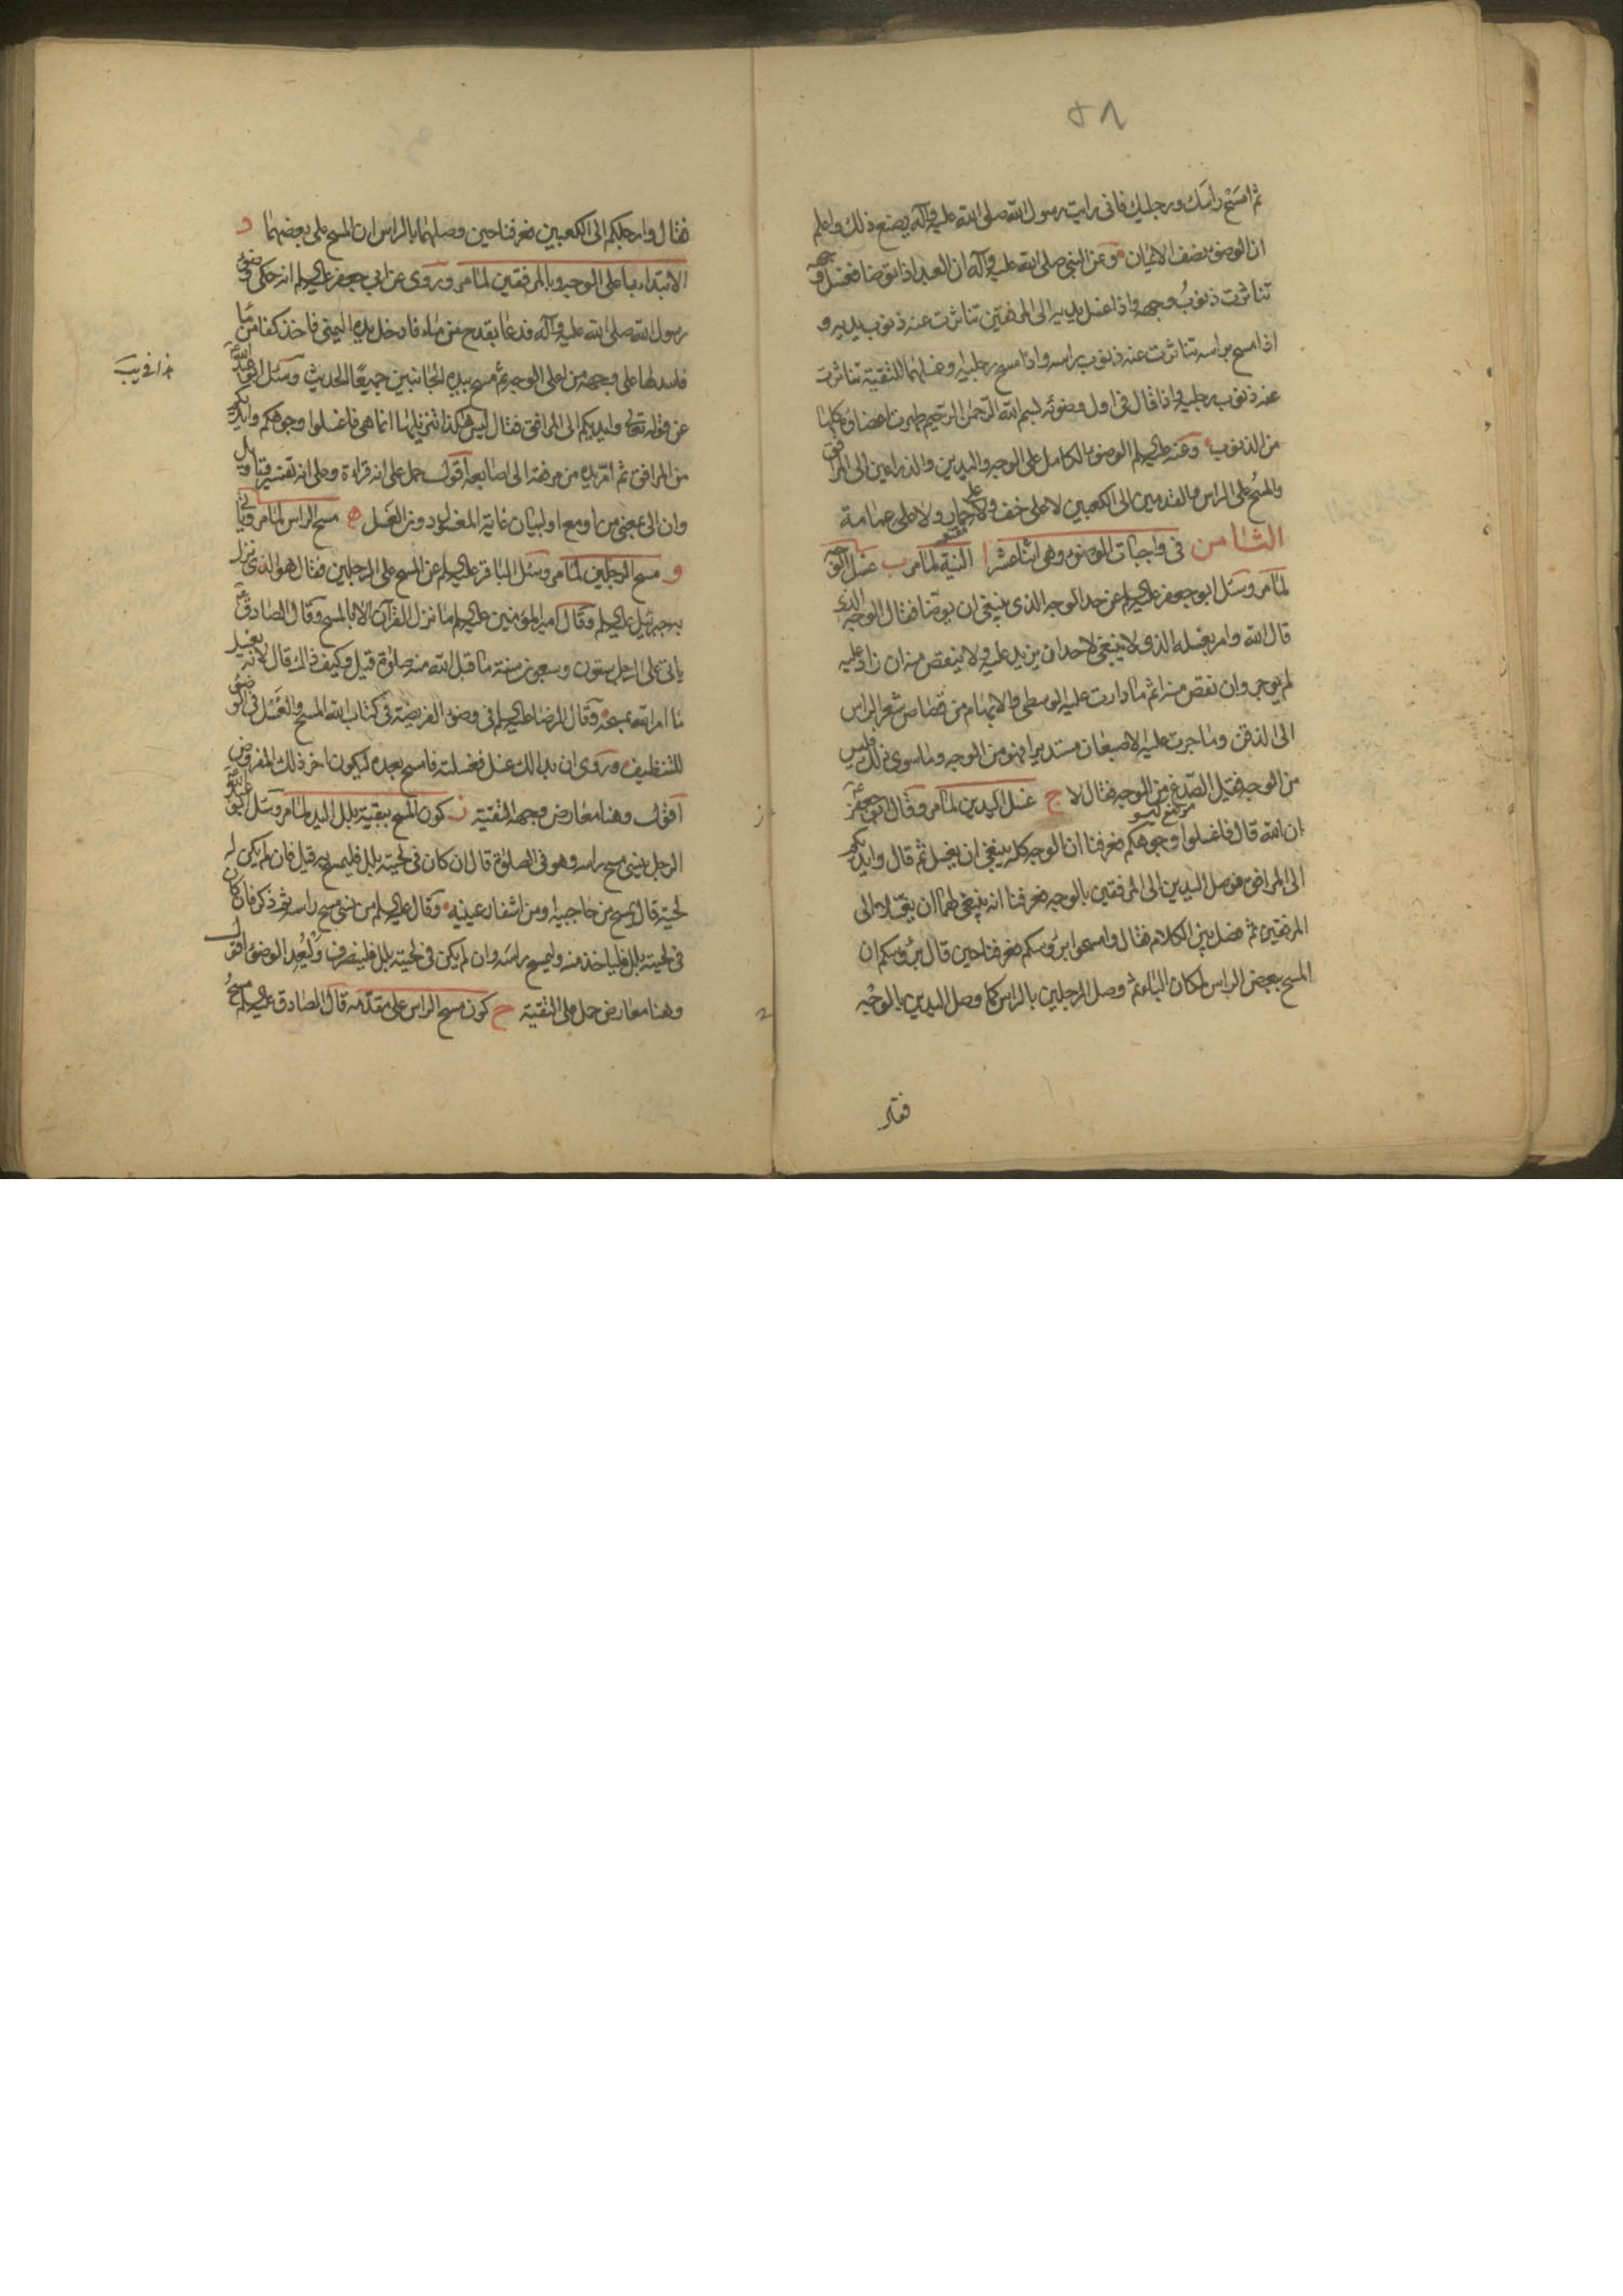 ٥٨
ثم امسح راسك ورجليك فانى رايت رسول الله صلى الله عليه وآله يصنع ذلك واعلم
ان الوضوء نصف الايمان وعن النبى صلى الله عليه وآله ان العبد اذا توضا فغسل وجهه
تناثرت ذنوب وجهه واذا غسل يديه الى المرفقين تناثرت عنه ذنوب يديه و
اذا مسح براسه تناثرت عنه ذنوب راسه واذا مسح رجليه وغسلهما للتقية تناثرت
عنه ذنوب رجليه واذا قال فى اول وضوئه بسم الله الرحمن الرحيم طهرت اعضاؤه كلها
من الذنوب وعنه عليه السلم الوضوء الكامل على الوجه واليدين والذراعين الى المرافق
والمسح على الراس والقدمين الى الكعبين لا على خف ولا على خمار ولا على عمامة
الثامن فى واجبات الوضوء وهى اثنا عشر ا النية لما مر ب غسل الوجه
لما مر وسئل ابو جعفر عليه السلم عن حد الوجه الذى ينبغى ان يوضا فقال الوجه الذى
قال الله وامر بغسله الذى لا ينبغى لاحد ان يزيد عليه ولا ينقص منه ان زاد عليه
لم يوجر وان نقص منه اثم ما دارت عليه الوسطى والابهام من قصاص شعر الراس
الى الذقن وما جرت عليه الاصبعان مستديرا فهو من الوجه وما سوى ذلك فليس
من الوجه فقيل الصدغ من الوجه فقال لا ج غسل اليدين لما مر وقال ابو جعفر
ان الله قال فاغسلوا وجوهكم فعرفنا ان الوجه كله ينبغى ان يغسل ثم قال وايديكم
الى المرافق فوصل اليدين الى المرفقين بالوجه فعرفنا انه ينبغى لهما ان يغسلا الى
المرفقين ثم فصل بين الكلام فقال وامسحوا برؤسكم فعرفنا حين قال برؤسكم ان
المسح ببعض الراس لمكان الباء ثم وصل الرجلين بالراس كما وصل اليدين بالوجه
فقال
فقال وارجلكم الى الكعبين فعرفنا حين وصلهما بالراس ان المسح على بعضهما د
الابتداء باعلى الوجه وبالمرفقين لما مر وروى عن ابي جعفر عليه السلم انه حكى وضوء
رسول الله صلى الله عليه وآله فدعا بقدح من ماء فادخل يده اليمنى فاخذ كفا من ماء
فاسدلها على وجهه من اعلى الوجه ثم مسح بيده الجانبين جميعا الحديث وسئل ابو عبد الله
عن قوله تعالى وايديكم الى المرافق فقال ليس هكذا تنزيلها انما هى فاغسلوا وجوهكم وايديكم
من المرافق ثم امر يده من مرفقه الى اصابعه اقول حمل على انه قراءة وعلى انه تفسير وتاويل
وان الى بمعنى من او مع او لبيان غاية المغسول دون الغسل ه مسح الراس لما مر وياتى
و مسح الرجلين لما مر وسئل الباقر عليه السلم عن المسح على الرجلين فقال هو الذى نزل
به جبرئيل عليه السلم وقال امير المؤمنين عليه السلم ما نزل القرآن الا بالمسح وقال الصادق
ياتى على الرجل ستون وسبعون سنة ما قبل الله منه صلوة قيل وكيف ذاك قال لانه يغسل
ما امر الله بمسحه وقال الرضا عليه السلم فى وضوء الفريضة فى كتاب الله المسح والغسل فى الوضوء
للتنظيف وروى ان بدا لك غسل فغسلته فامسح بعده ليكون اخر ذلك المفروض
اقول وهنا معارض وجهه التقية ز كون المسح ببقية بلل اليد لما مر وسئل ابو عبد الله
الرجل ينسى مسح راسه وهو فى الصلوة قال ان كان فى لحيته بلل فليمسح به قيل فان لم يكن له
لحية قال يمسح من حاجبيه او من اشفار عينيه وقال عليه السلم من نسى مسح راسه ثم ذكر فان كان
فى لحيته بلل فلياخذ منه وليمسح راسه وان لم يكن فى لحيته بلل فلينصرف وليعد الوضوء اقول
وهنا معارض حمل على التقية ح كون مسح الراس على مقدمه قال الصادق عليه السلم مسح